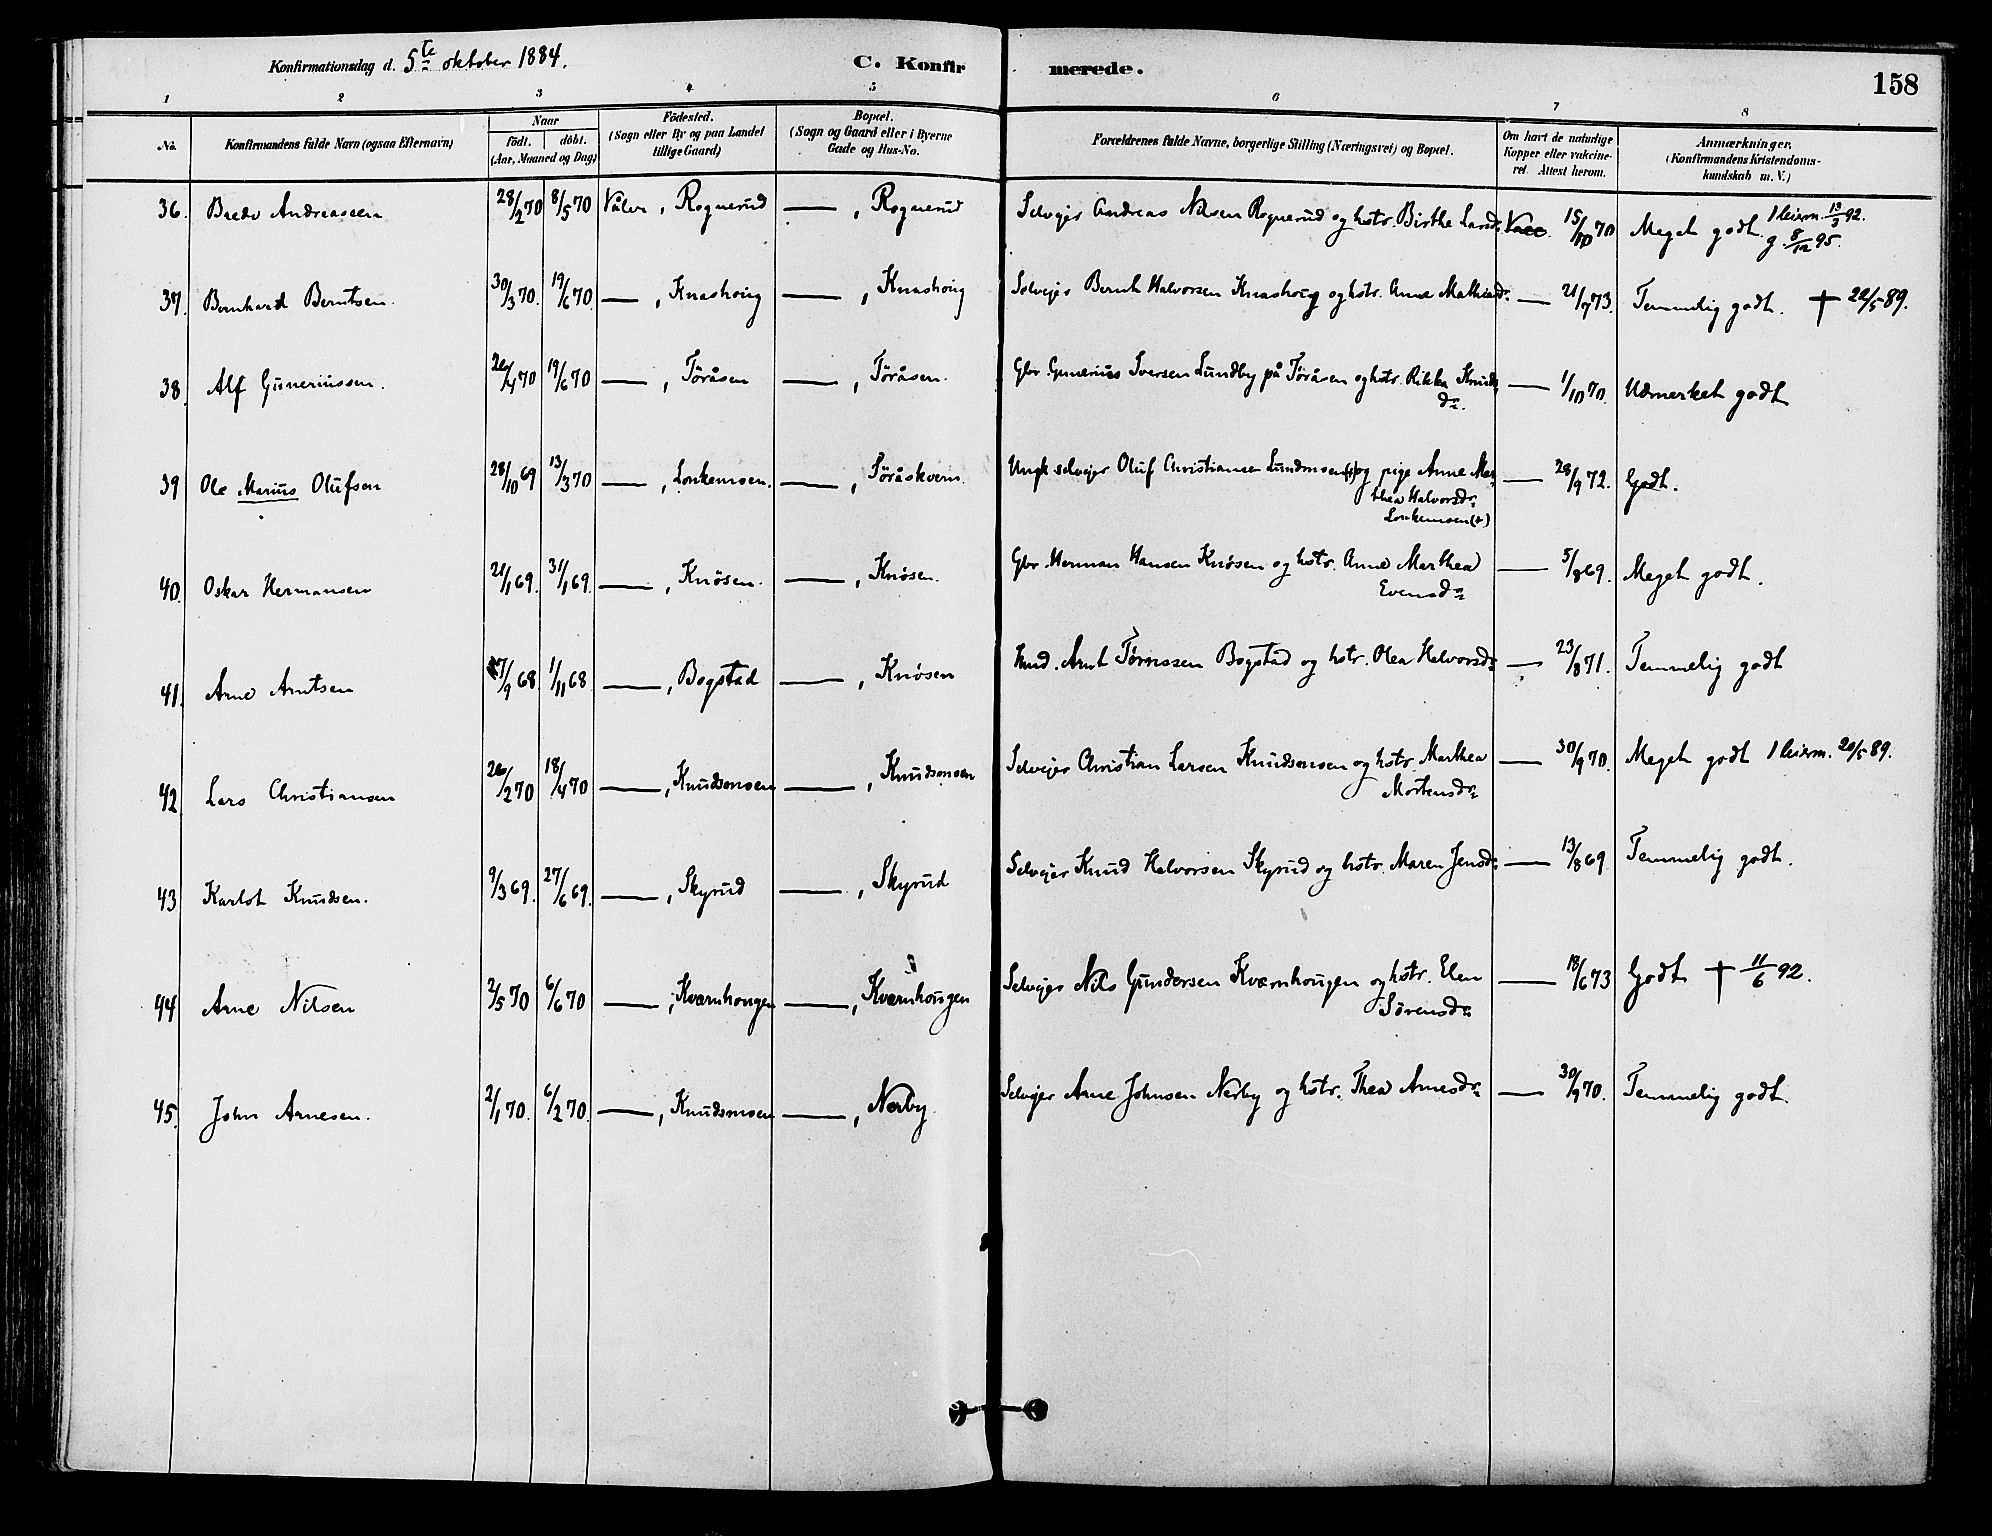 Konfirmationsdag d. 5te oktober 1884. C. Konfirmerede. 158
1 2 3 4 5 6 7 8
No. Konfirmandens fulde Navn (ogsaa Efternavn) Naar födt. döbt. (Aar, Maaned og Dag) Födested. (Sogn eller By og paa Landet tillige Gaard) Bopæl. (Sogn og Gaard eller i Byerne Gade og Hus-No. Forældrenes fulde Navne, borgerlige Stilling (Næringsvei) og Bopæl. Om havt de naturlige Kopper eller vakcineret. Attest herom. Anmærkninger. (Konfirmandens Kristendomskundskab m. V.)
36. Bredo Andreassen 28/2 70 8/5 70 Våler, Rognerud —, Rognerud Selvejer Andreas Nilsen Rognerud og hstr. Birthe Larsd. Vacc. 15/10 70 Meget godt. 1 leierm. 13/3 92. g. 8/12 95.
37. Bernhard Berntsen. 30/3 70. 19/6 70. —, Knashoug —, Knashoug Selvejer Bernt Halvorsen Knashoug og hstr. Anne Mathisd. — 21/7 73. Temmelig godt. † 22/5 89.
38. Alf Guneriussen. 26/4 70 19/6 70 —, Töråsen —, Töråsen. Gbr. Gunerius Iversen Lundby på Töråsen og hstr. Rikka Knudsdr. — 1/10 70. Udmerket godt
39 Ole Marius Olufsen 28/10 69 13/3 70 —, Lonkemoen. —, Töråskvern. Ungk. selvejer Oluf Christiansen Lundmoen (1) og pige Anne Marthea Halvorsdr. Lonkemoen (2) — 28/9 72. Godt.
40. Oskar Hermansen 21/1 69. 31/1 69. —, Knösen. —, Knösen. Gbr. Herman Hansen Knösen og hstr. Anne Marthea Evensdr. — 5/8 69. Meget godt.
41. Arne Arntsen 17/9 68. 1/11 68 —, Bogstad —, Knösen Hmd. Arnt Tørrissen Bogstad og hstr. Olea Halvorsdr. — 23/8 71. Temmelig godt
42 Lars Christiansen 26/2 70 18/4 70 —, Knudsmoen —, Knudsmoen Selvejer Christian Larsen Knudsmoen og hstr. Marthea Mortensdr. — 30/9 70. Meget godt 1 leierm. 20/5 89.
43 Karlot Knudsen. 9/3 69. 27/6 69. —, Skyrud —, Skyrud Selvejer Knud Halvorsen Skyrud og hstr. Maren Jensdr. — 13/8 69 Temmelig godt.
44 Arne Nilsen 2/5 70 6/6 70 —, Kvernhougen —, Kvernhougen Selvejer Nils Gundersen Kvernhougen og hstr. Elen Sörensdr. — 18/6 73 Godt † 11/6 92.
45. John Arnesen. 2/1 70. 6/2 70. —, Knudsmoen —, Nerby Selvejer Arne Johnsen Nerby og hstr. Thea Arnesdr. — 30/9 70. Temmelig godt.